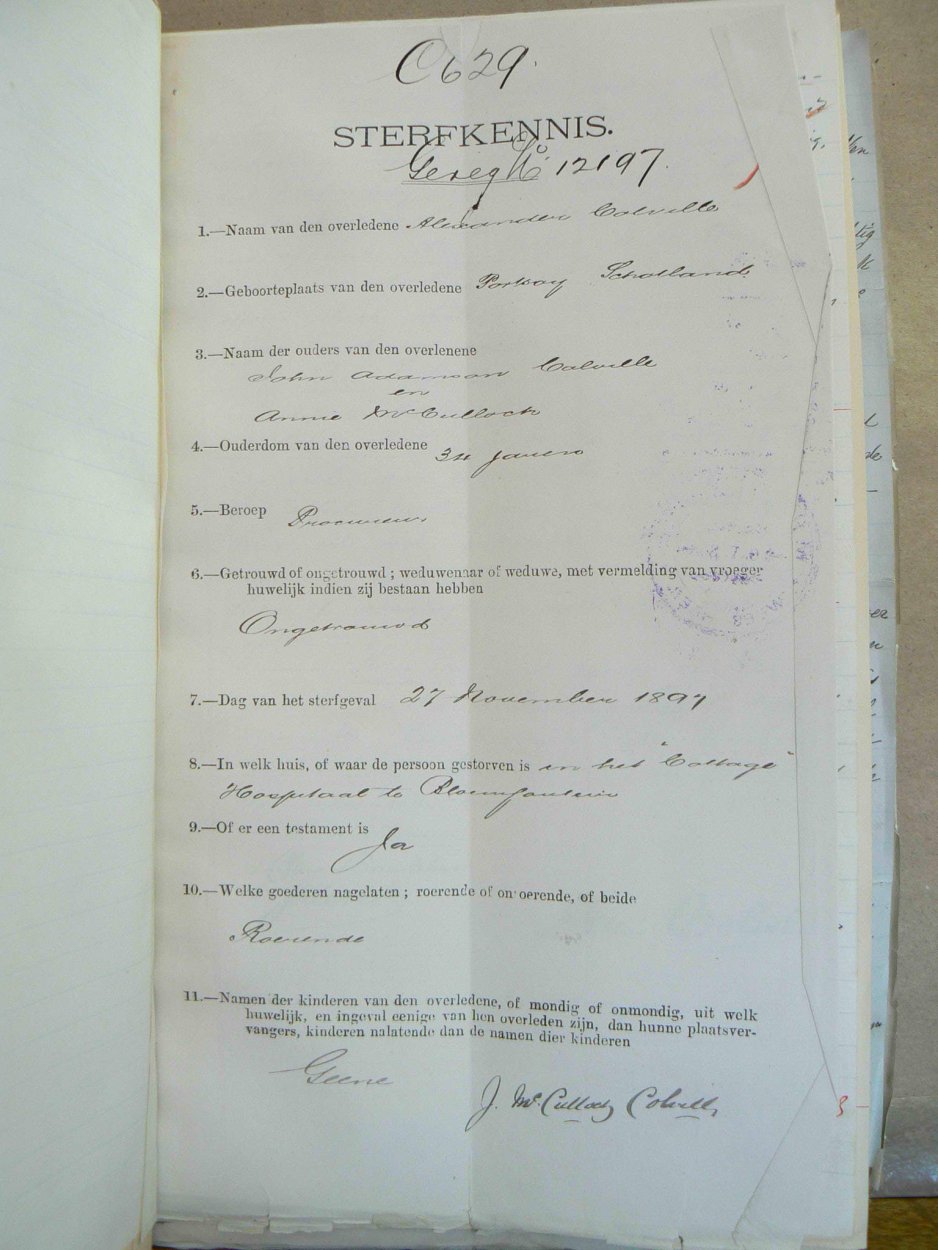 C629.
STERFKENNIS.
Gereg No 12197.
1.—Naam van den overledene Alexander Colville
2.—Geboorteplaats van den overledene Portsoy Schotland
3.—Naam der ouders van den overlenene
John Adamson Colville
en
Annie McCulloch
4.—Ouderdom van den overledene 34 jaren
5.—Beroep Procureur
6.—Getrouwd of ongetrouwd ; weduwenaar of weduwe, met vermelding van vroeger
huwelijk indien zij bestaan hebben
Ongetrouwd
7.—Dag van het sterfgeval 27 November 1897
8.—In welk huis, of waar de persoon gestorven is in het "Cottage"
Hospitaal te Bloemfontein
9.—Of er een testament is Ja
10.—Welke goederen nagelaten ; roerende of onroerende, of beide
Roerende
11.—Namen der kinderen van den overledene, of mondig of onmondig, uit welk
huwelijk, en ingeval eenige van hen overleden zijn, dan hunne plaatsver-
vangers, kinderen nalatende dan de namen dier kinderen
Geene
J. McCulloch Colville